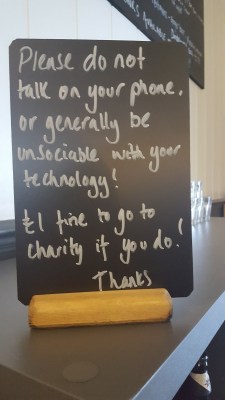 Please do not
talk on your phone.
or generally be
unsociable with your
technology!
£1 fine to go to
charity if you do!
Thanks